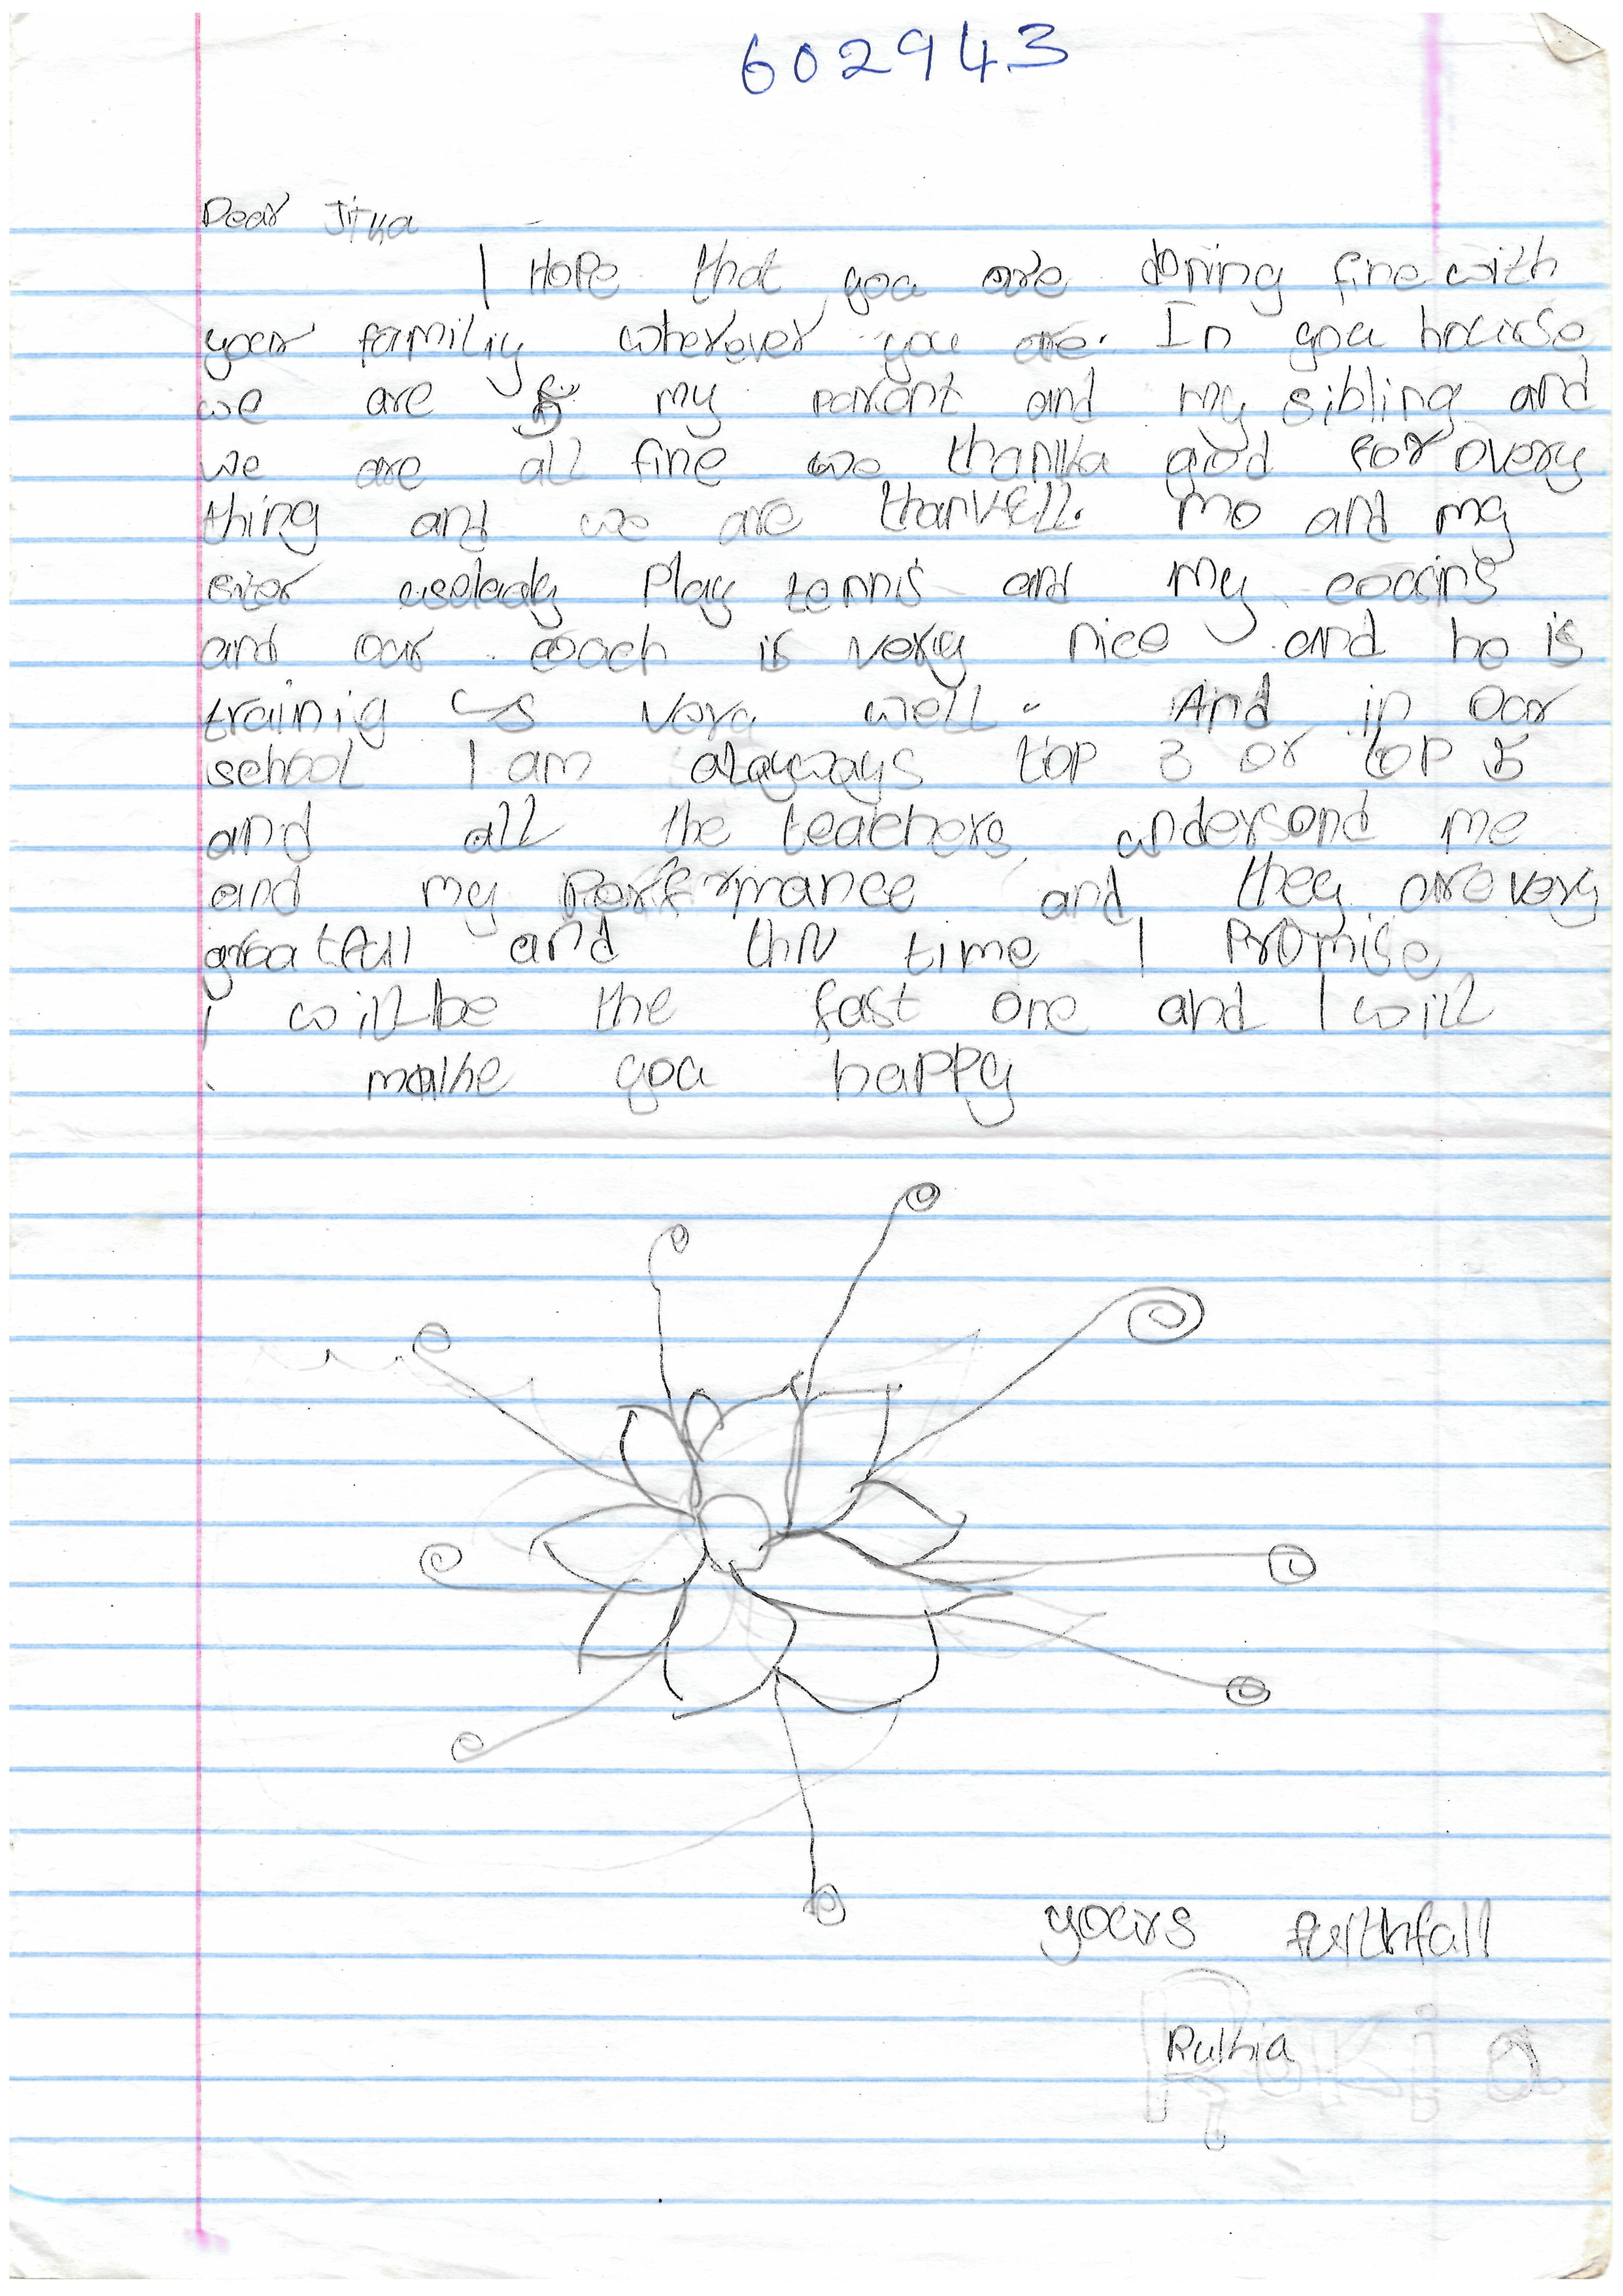 602943
Dear Jitka
I Hope that you are doning fine with
your familiy wherever you are. In you hourse
we are 5 my parent and my sibling and
we are all fine we thanka god for every
thing and we are thankfull. me and my
siter usoleady Play tennis and my cousins
and our coach is very nice and he is
trainig us very well. And in our
school I am alayways top 3 or top 5
and all the teachers undersond me
and my Performance and they are very
greatfull and this time I Promise
I will be the fast one and I will
make you happy
yours faithfull
Rukia
Rukia